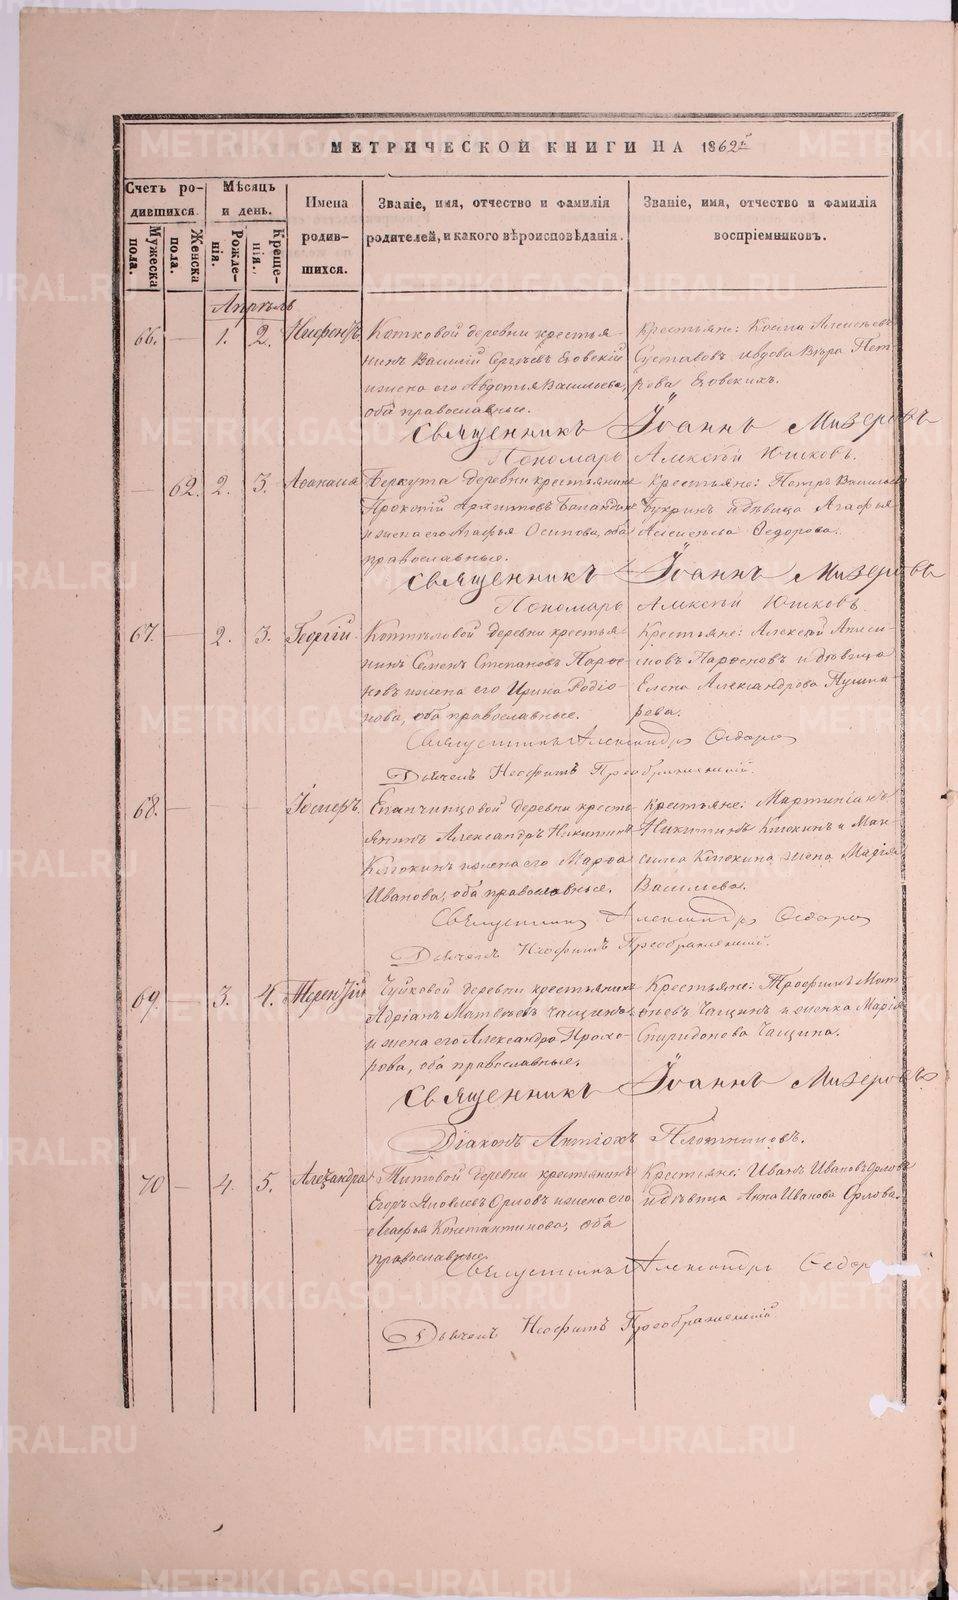 МЕТРИЧЕСКОЙ КНИГИ НА 1862й
Счетъ родившихся.
Мѣсяцъ и день.
Имена родившихся.
Званіе, имя, отчество и фамилія родителей, и какого вѣроисповѣданія.
Званіе, имя, отчество и фамилія воспріемниковъ.
Мужеска пола.
Женска пола.
Рожденія.
Крещенія.
Апрѣль
66. — 1. 2. Нифонтъ
Котковой деревни крестья-
нинъ Василій Сергѣевъ Езовскій
и жена его Авдотья Васильева,
оба православные.
Крестьяне: Косма Алексѣевъ
Сусталовъ и вдова Вѣра Пет-
рова Езовскихъ.
Священникъ Іоаннъ Мизеровъ
Пономарь Алексѣй Юшковъ.
— 62. 2. 3. Аѳанасія
Беркута деревни крестьянинъ
Прокопій Архиповъ Баландинъ
и жена его Агафья Осипова, оба
православные.
Крестьяне: Петръ Васильевъ
Букринъ и дѣвица Агафья
Алексѣева Ѳедорова.
Священникъ Іоаннъ Мизеровъ
Пономарь Алексѣй Юшковъ.
67. — 2. 3. Георгій.
Коптѣловой деревни крестья-
нинъ Семенъ Степановъ Порос-
ковъ и жена его Ирина Родіо-
нова, оба православные.
Крестьяне: Алексѣй Аниси-
мовъ и дѣвица
Елена Александрова Пушка-
рева.
Священникъ Александръ Ѳедоровъ
Дьячекъ Неофитъ Преображенскій.
68. — — — Іосифъ.
Епанчинцовой деревни кресть-
янинъ Александръ Никитинъ
Клюкинъ и жена его Марѳа
Иванова, оба православные.
Крестьяне: Мартиніанъ
Никитинъ Клюкинъ и Мак-
сима Клюкина жена Марія
Васильева.
Священникъ Александръ Ѳедоровъ
Дьячекъ Неофитъ Преображенскій.
69. — 3. 4. Терентій
Чуйковой деревни крестьянинъ
Адріанъ Матвѣевъ Чащинъ
и жена его Александра Прохо-
рова, оба православные.
Крестьяне: Трофимъ Мат-
вѣевъ Чащинъ и женка Марія
Спиридонова Чащина.
Священникъ Іоаннъ Мизеровъ
Діаконъ Антіохъ Плотниковъ.
70 — 4. 5. Александръ
Титовой деревни крестьянинъ
Егоръ Яковлевъ Орловъ и жена его
Агафья Константинова, оба
православные.
Крестьяне: Иванъ Ивановъ Орловъ
и дѣвица Анна Иванова Орлова.
Священникъ Александръ Ѳедоровъ
Дьячекъ Неофитъ Преображенскій.
METRIKI.GASO-URAL.RU